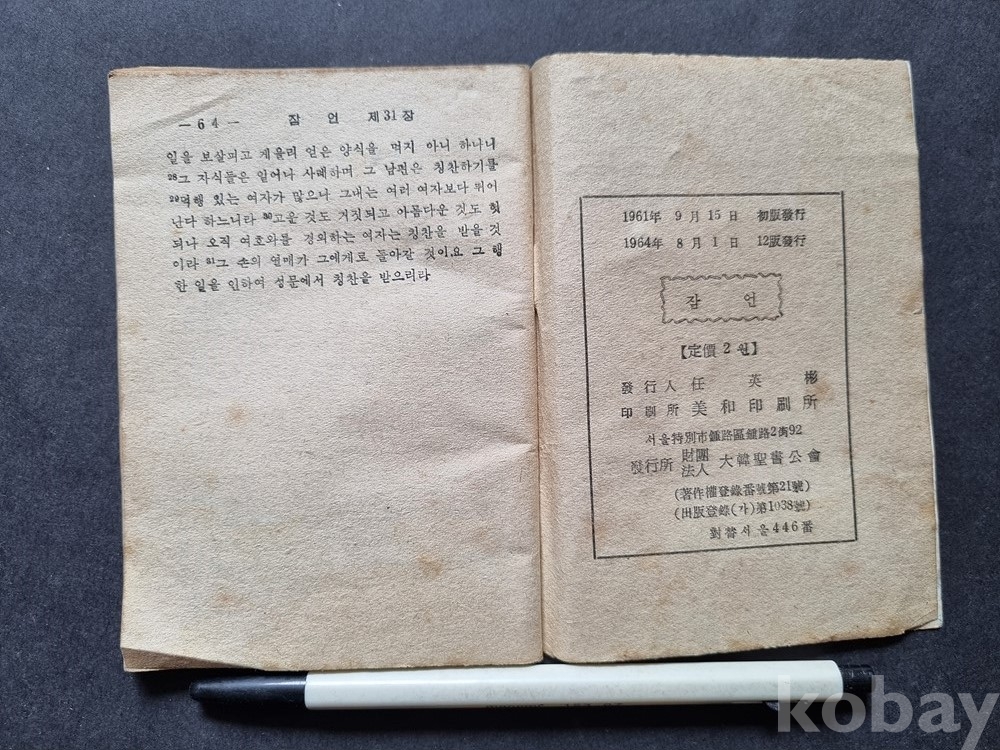 —64— 잠 언 제31장
일을 보살피고 게을리 얻은 양식을 먹지 아니 하나니
28그 자식들은 일어나 사례하며 그 남편은 칭찬하기를
29덕행 있는 여자가 많으나 그대는 여러 여자보다 뛰어
난다 하느니라 30고운 것도 거짓되고 아름다운 것도 헛
되나 오직 여호와를 경외하는 여자는 칭찬을 받을 것
이라 31그 손의 열매가 그에게로 돌아갈 것이요 그 행
한 일을 인하여 성문에서 칭찬을 받으리라
1961年 9月 15日 初版發行
1964年 8月 1日 12版發行
잠 언
【定價 2원】
發行人 任 英 彬
印刷所 美和印刷所
서울特別市鍾路區鍾路2街92
發行所 財團法人 大韓聖書公會
(著作權登錄番號第21號)
(出版登錄(가)第1038號)
對替서울446番
kobay